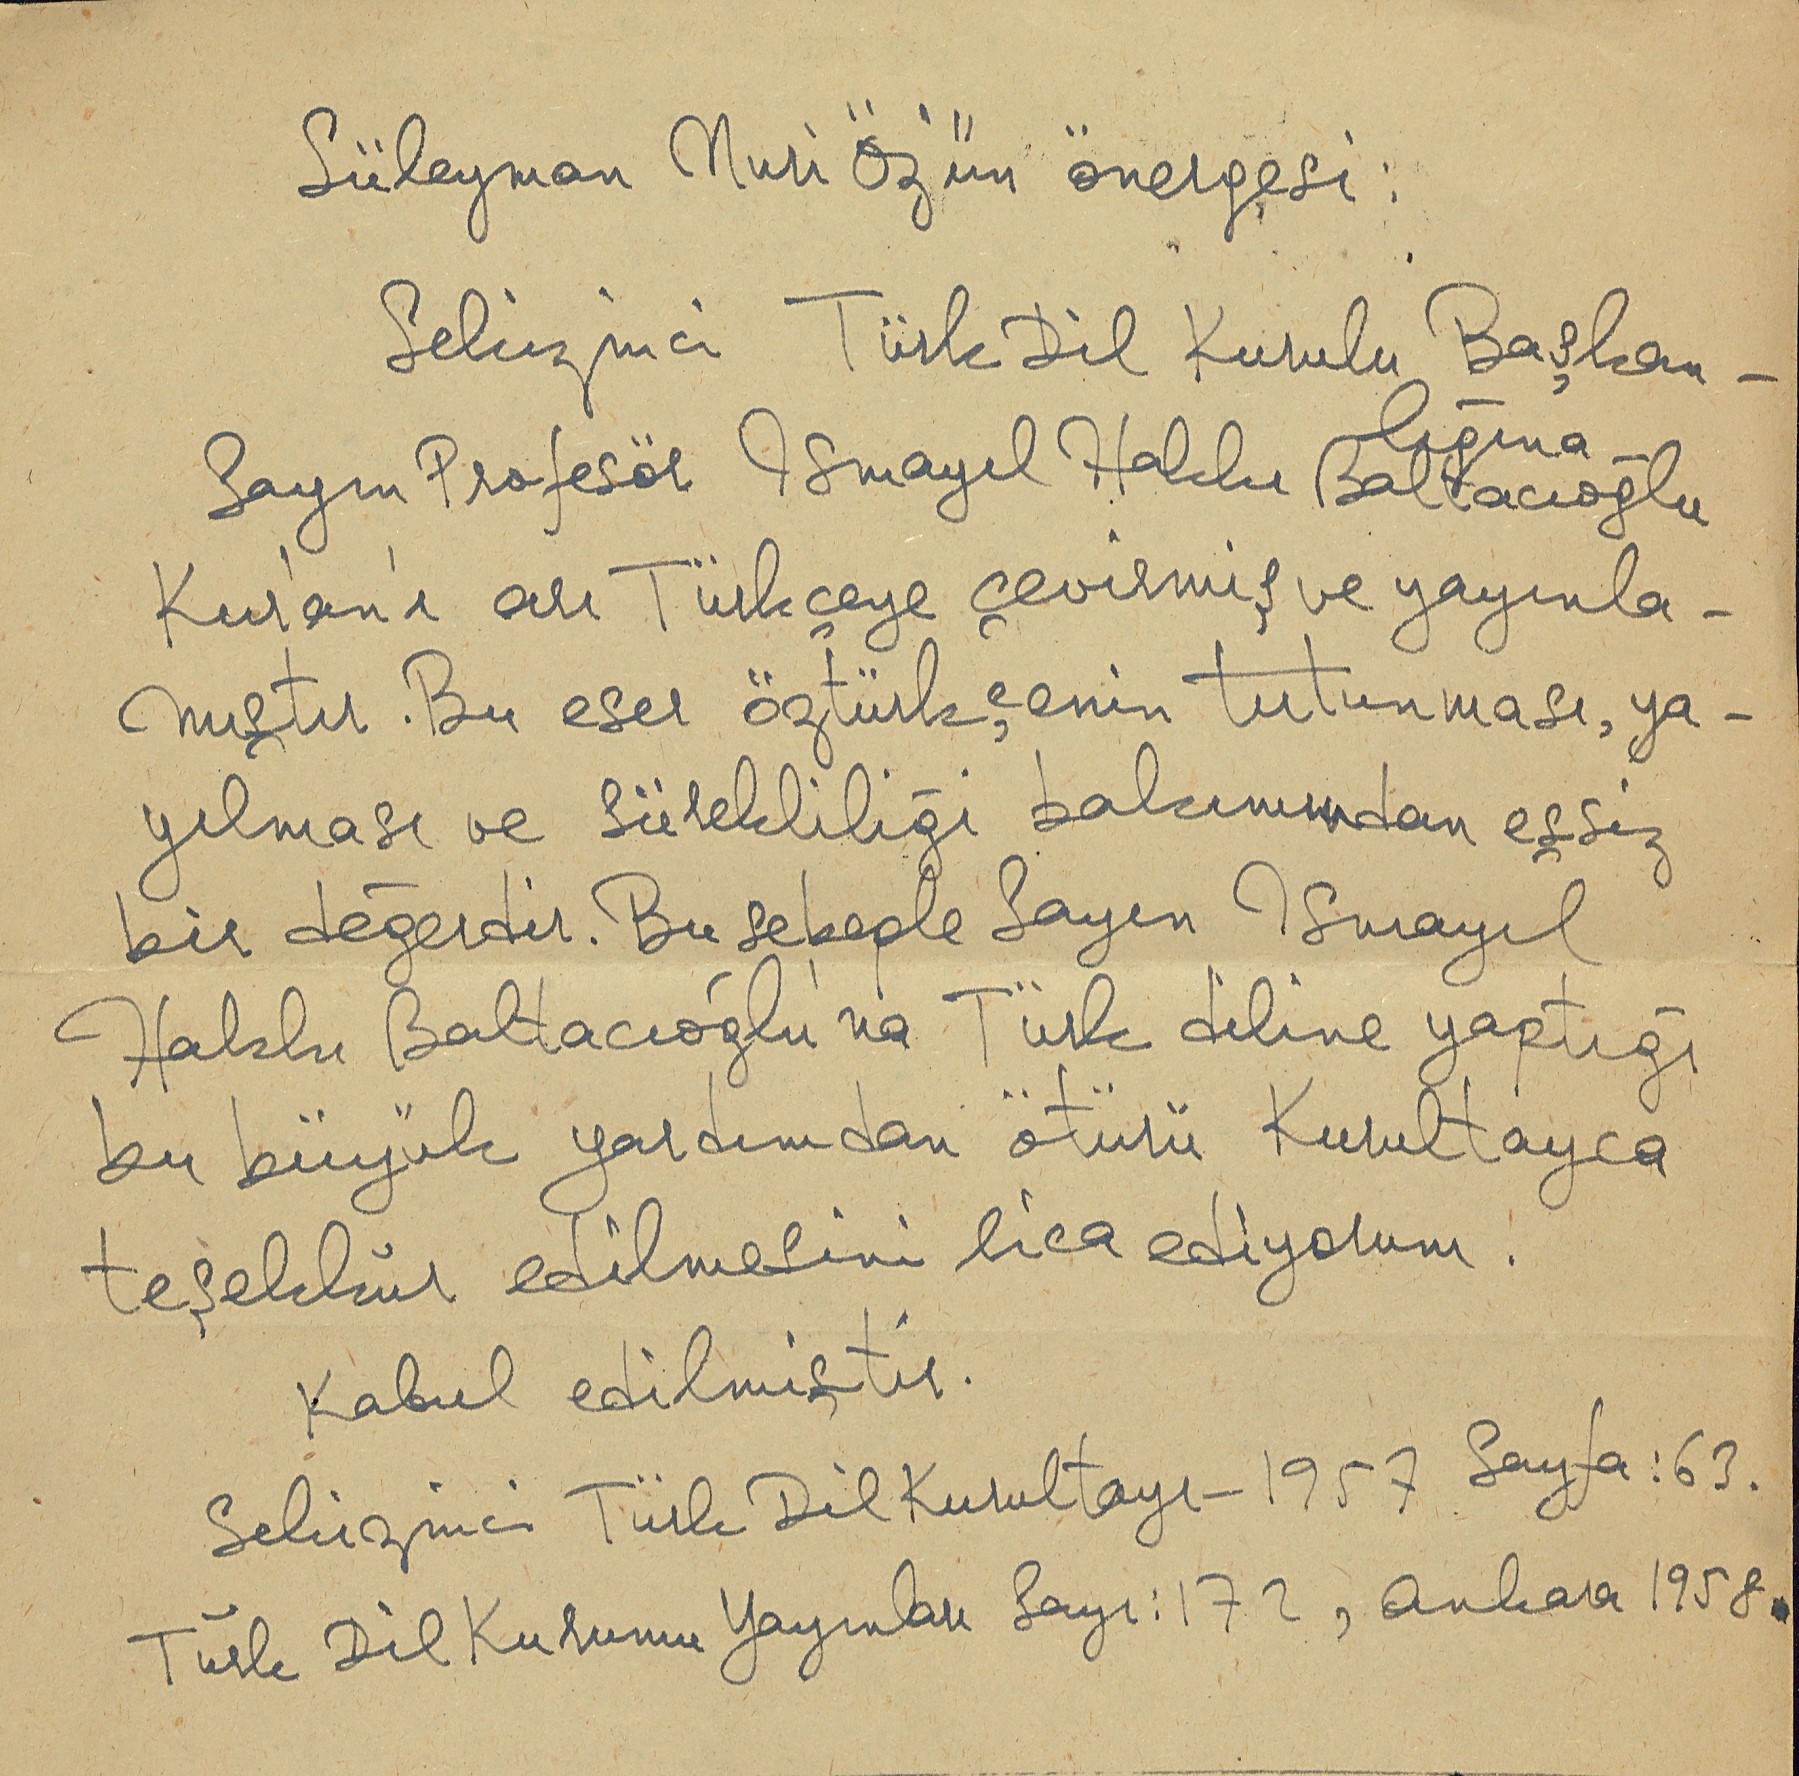 Süleyman Nuri Öz'ün önergesi:
Sekizinci Türk Dil Kurulu Başkan-
lığına
Sayın Profesör Ismayıl Hakkı Baltacıoğlu
Kur'an'ı arı Türkçeye çevirmiş ve yayınla-
mıştır. Bu eser öztürkçenin tutunması, ya-
yılması ve sürekliliği bakımından eşsiz
bir değerdir. Bu sebeple Sayın Ismayıl
Hakkı Baltacıoğlu'na Türk diline yaptığı
bu büyük yardımdan ötürü Kurultayca
teşekkür edilmesini rica ediyorum.
Kabul edilmiştir.
Sekizinci Türk Dil Kurultayı - 1957 Sayfa: 63.
Türk Dil Kurumu Yayınları Sayı: 172, Ankara 1958.